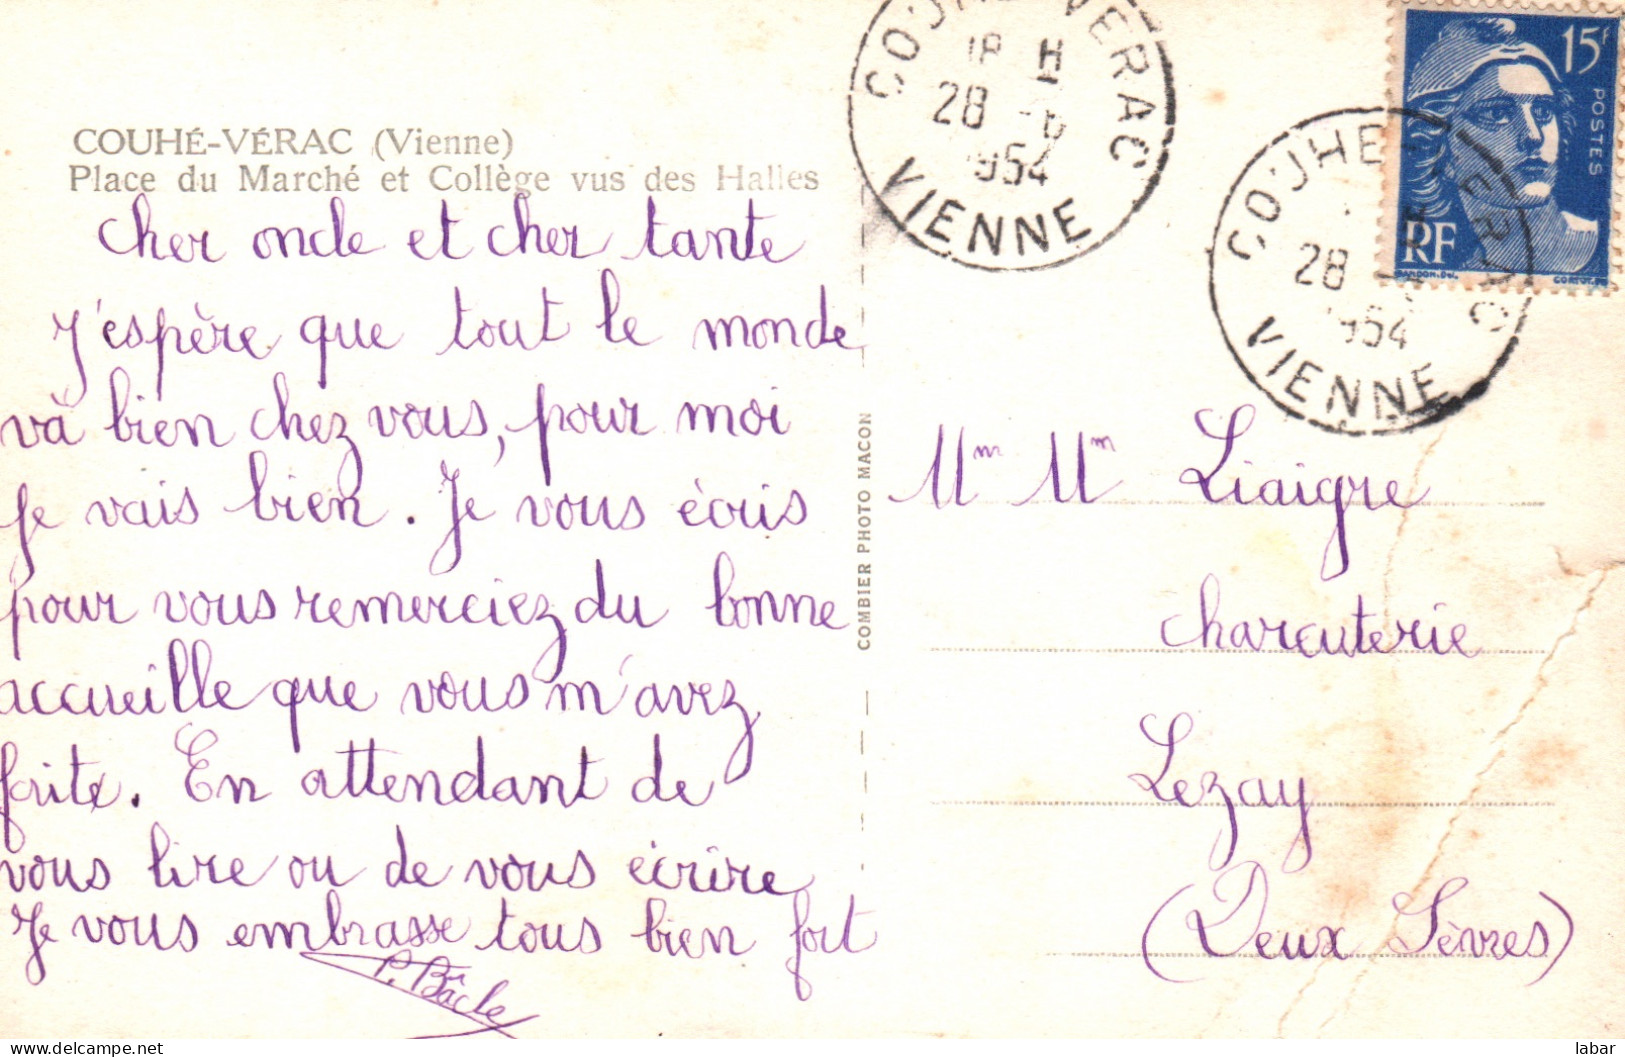 COUHÉ-VÉRAC (Vienne)
Place du Marché et Collège vus des Halles
cher oncle et cher tante
J'espère que tout le monde
và bien chez vous, pour moi
je vais bien. Je vous écris
pour vous remerciez du bonne
accueille que vous m'avez
faite. En attendant de
vous lire ou de vous écrire
Je vous embrasse tous bien fort
P. Bâcle
COMBIER PHOTO MACON
COUHE-VERAC
18 H
28 -6
1954
VIENNE
15F
POSTES
RF
GANDON.Del.
CORTOT.
COUHE-VERAC
28
1954
VIENNE
Mm Mm Liaigre
charcuterie
Lezay
(Deux Sèvres)
labar